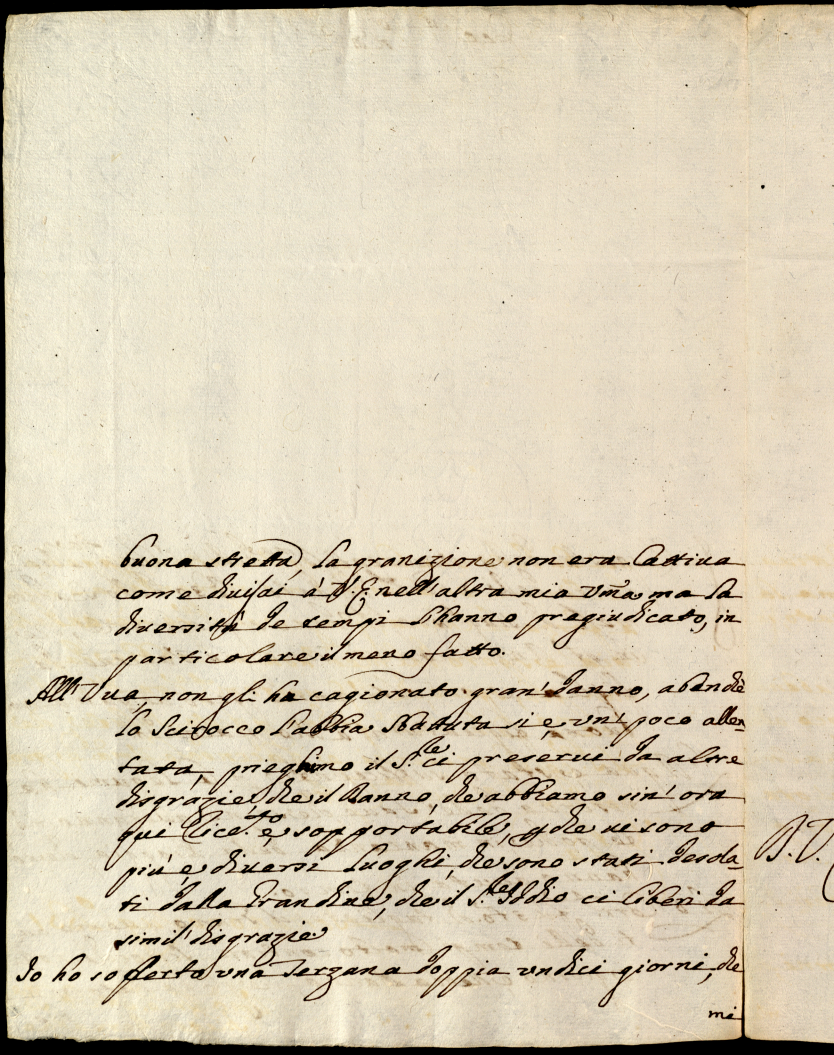 buona stretta, la granizione non era Cattiua
come diuisai à V. E. nell'altra mia Vma, ma la
diuersità de tempi l'hanno pregiudicato, in
particolare il meno fatto.
All'Vua, non gli ha cagionato gran' danno, abenche
lo Scirocco l'abbia Sbatuta si è vn' poco allen-
tata, preghimo il S.re ci preserui da altre
disgrazie, che il Danno, che abbiamo sin' ora
qui riceuto è sopportabile, che ui sono
più e diuersi luoghi, che sono stati desola-
ti dalla Grandine, che il S.re Iddio ci liberi da
simil' disgrazie
Io ho sofferto vna Terzana doppia vndici giorni, che
mi
B. V.